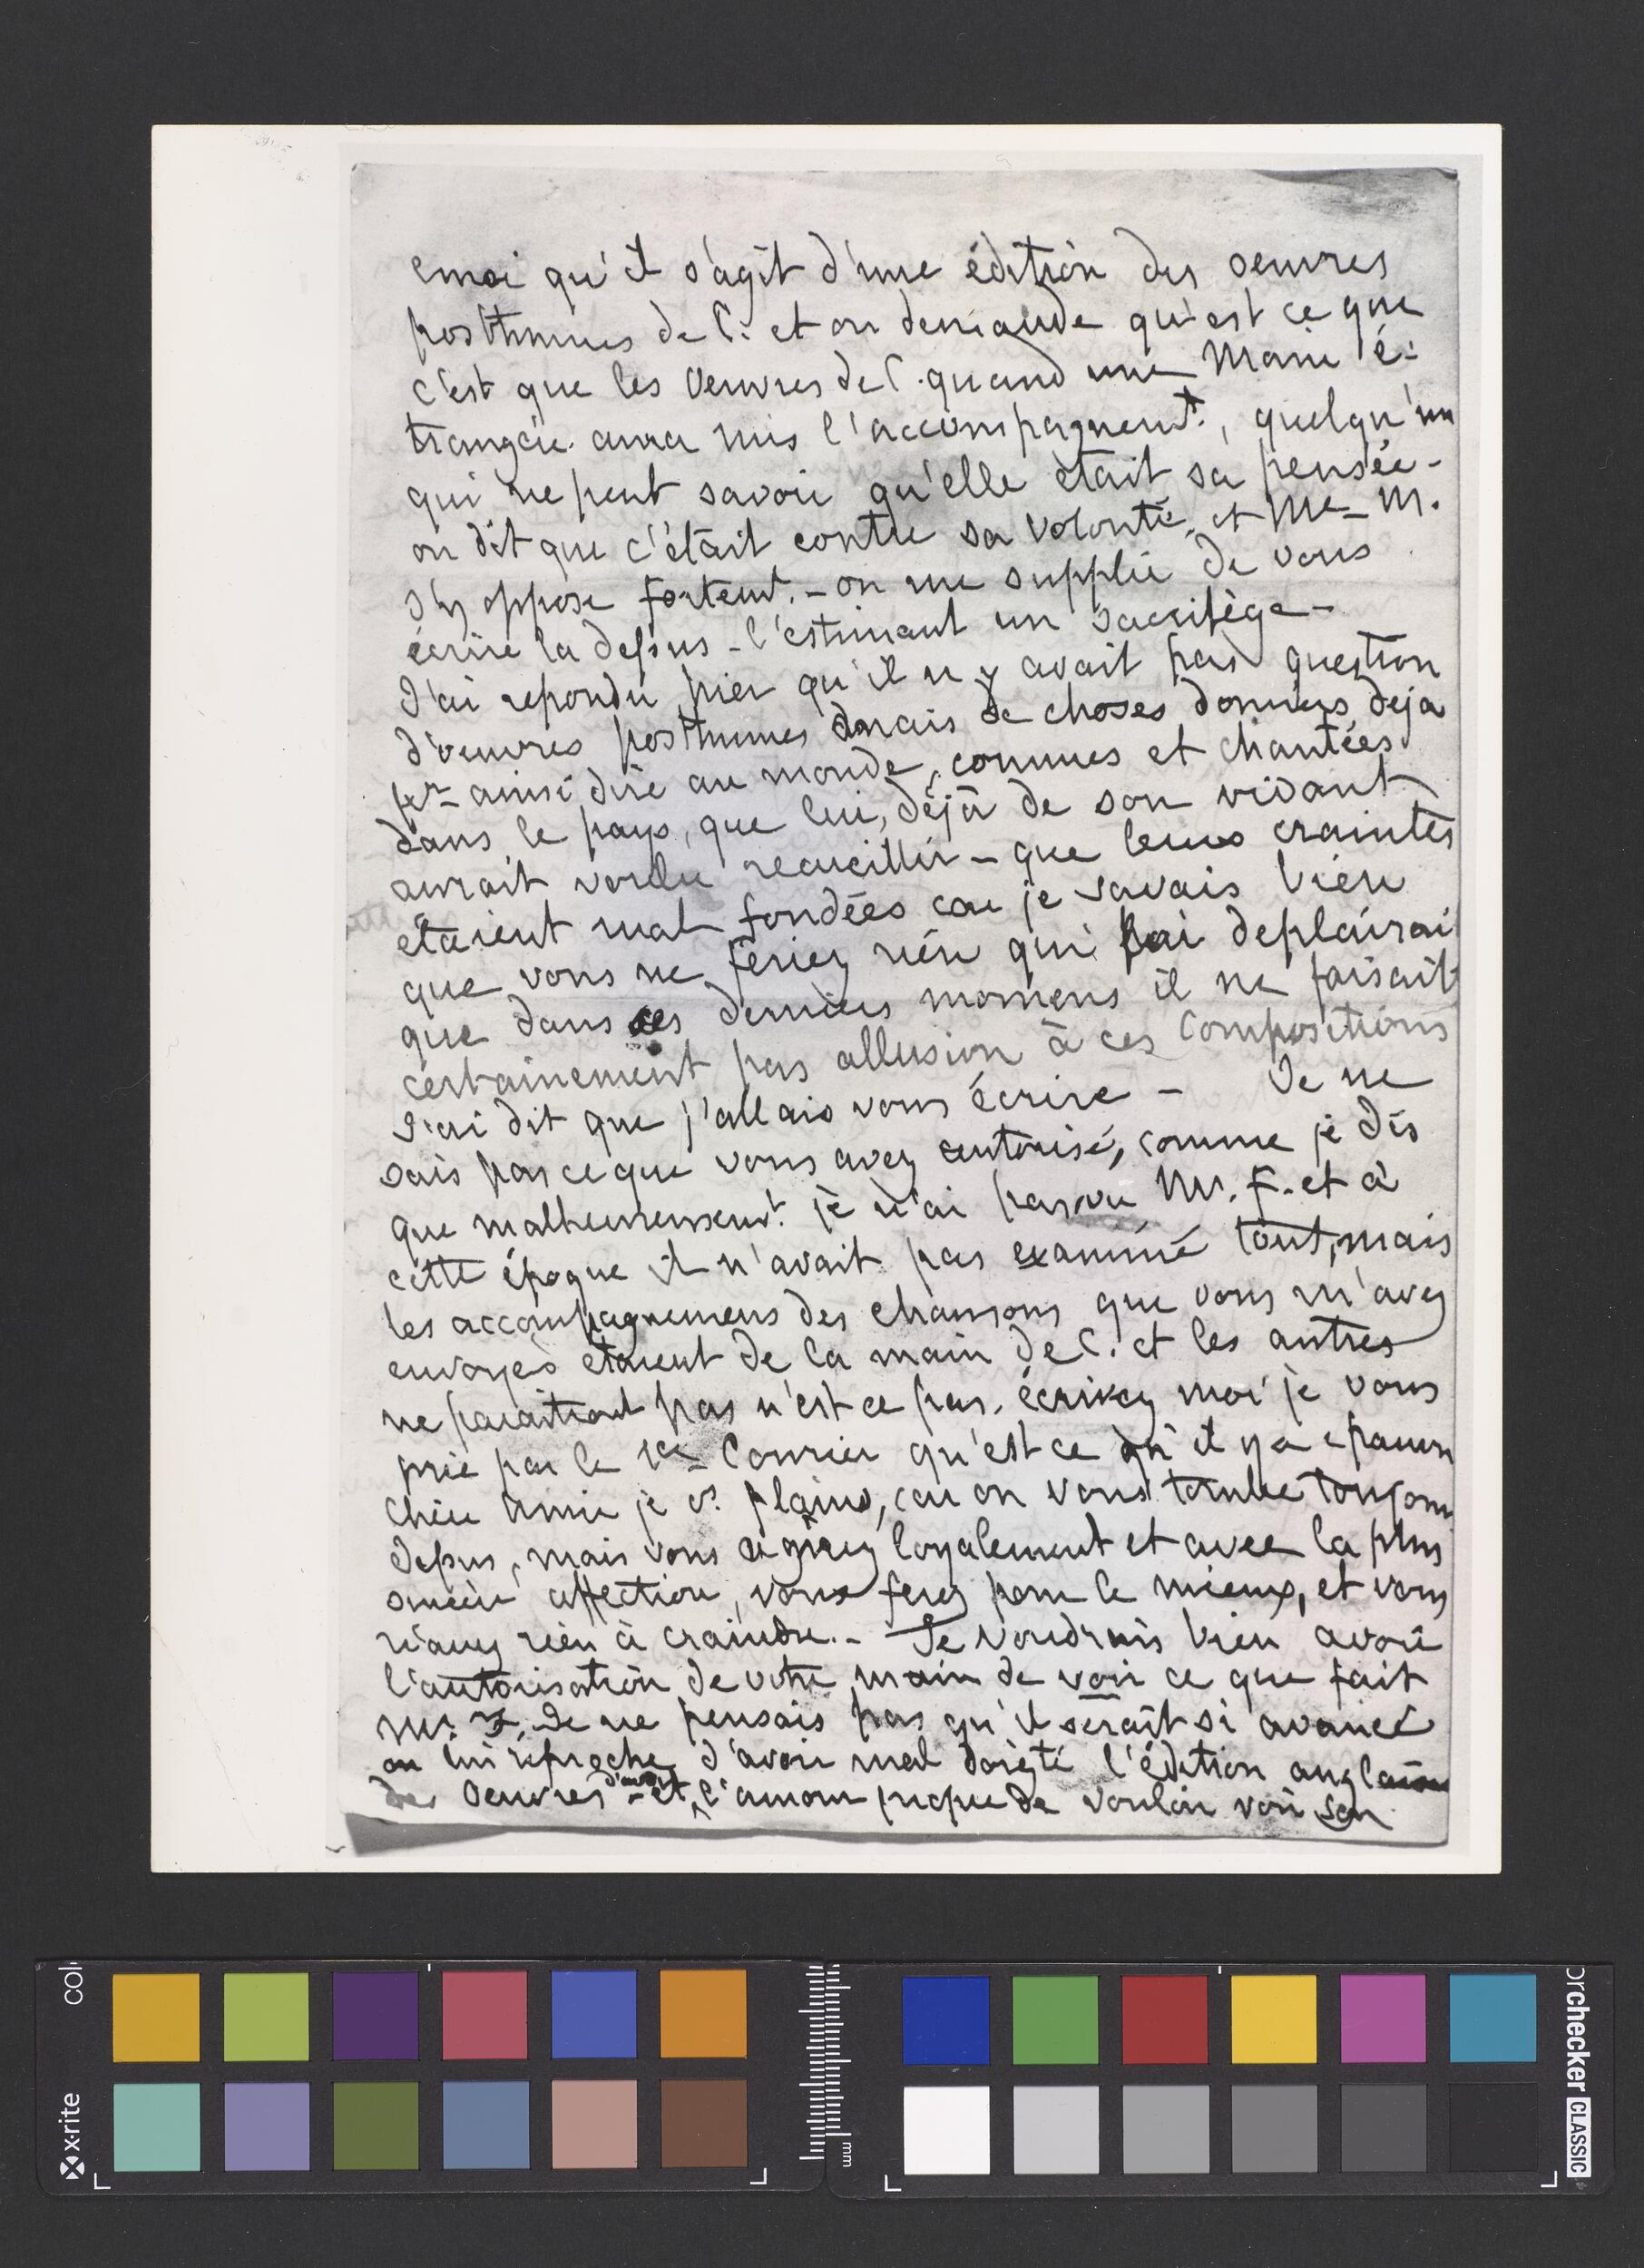 emoi qu'il s'agit d'une édition des oeuvres
posthumes de C. et on demande qu'est ce que
c'est que les Oeuvres de C. quand une Main é-
trangère aura mis l'accompagnemt., quelqu'un
qui ne peut savoir qu'elle était sa pensée -
on dit que c'était contre sa volonté, et Me M.
s'y oppose fortemt. - on me supplie de vous
écrire la dessus - l'estimant un sacrilège -
J'ai repondu hier qu'il n'y avait pas question
d'oeuvres posthumes mais de choses données déja
pr ainsi dire au monde, connues et chantées
dans le pays, que lui, déjà de son vivant
aurait voulu recueillir - que leurs craintes
étaient mal fondées car je savais bien
que vous ne feriez rien qui lui deplairai
que dans ces derniers momens il ne faisait
certainement pas allusion à ces compositions
J'ai dit que j'allais vous écrire - Je ne
sais pas ce que vous avez autorisé, comme je dis
que malheureusemt. je n'ai pas vu Mr. F. et à
cette époque il n'avait pas examiné tout, mais
les accompagnemens des chansons que vous m'avez
envoyés étaient de la main de C. et les autres
ne paraitront pas n'est ce pas. écrivez moi je vous
prie par le 1er Courrier qu'est ce qu'il y a
Chère Amie je vs. plains, car on vous tombe toujours
dessus, mais vous agirez loyalement et avec la plus
sincère affection, vous ferez pour le mieux, et vous
n'avez rien à craindre. - Je voudrais bien avoir
l'autorisation de votre main de voir ce que fait
Mr. F. Je ne pensais pas qu'il serait si avancé
on lui reproche d'avoir mal doigté l'édition anglaise
des Oeuvres - et d'avoir l'amour propre de vouloir voir son